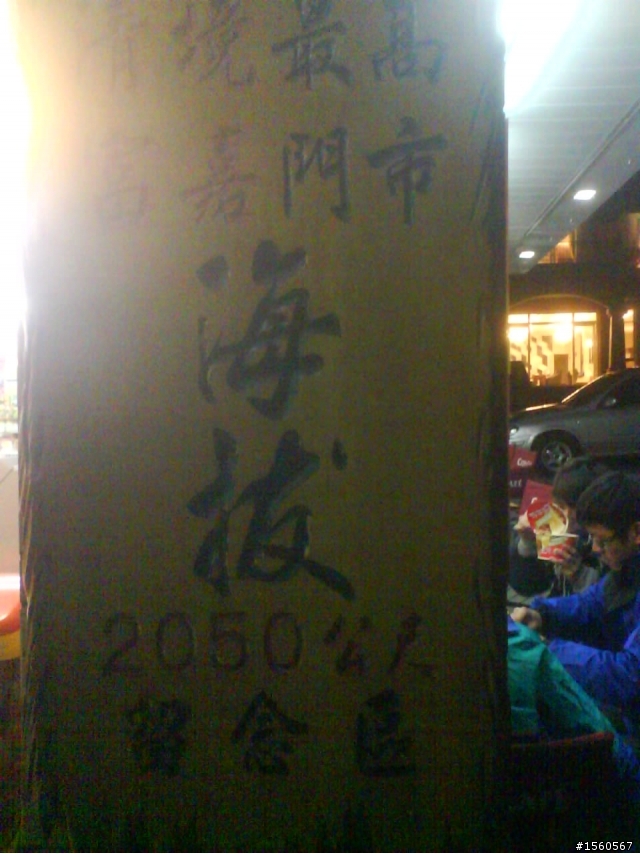 青境最高
高嘉門市
海
拔
2050公尺
留念區
#1560567